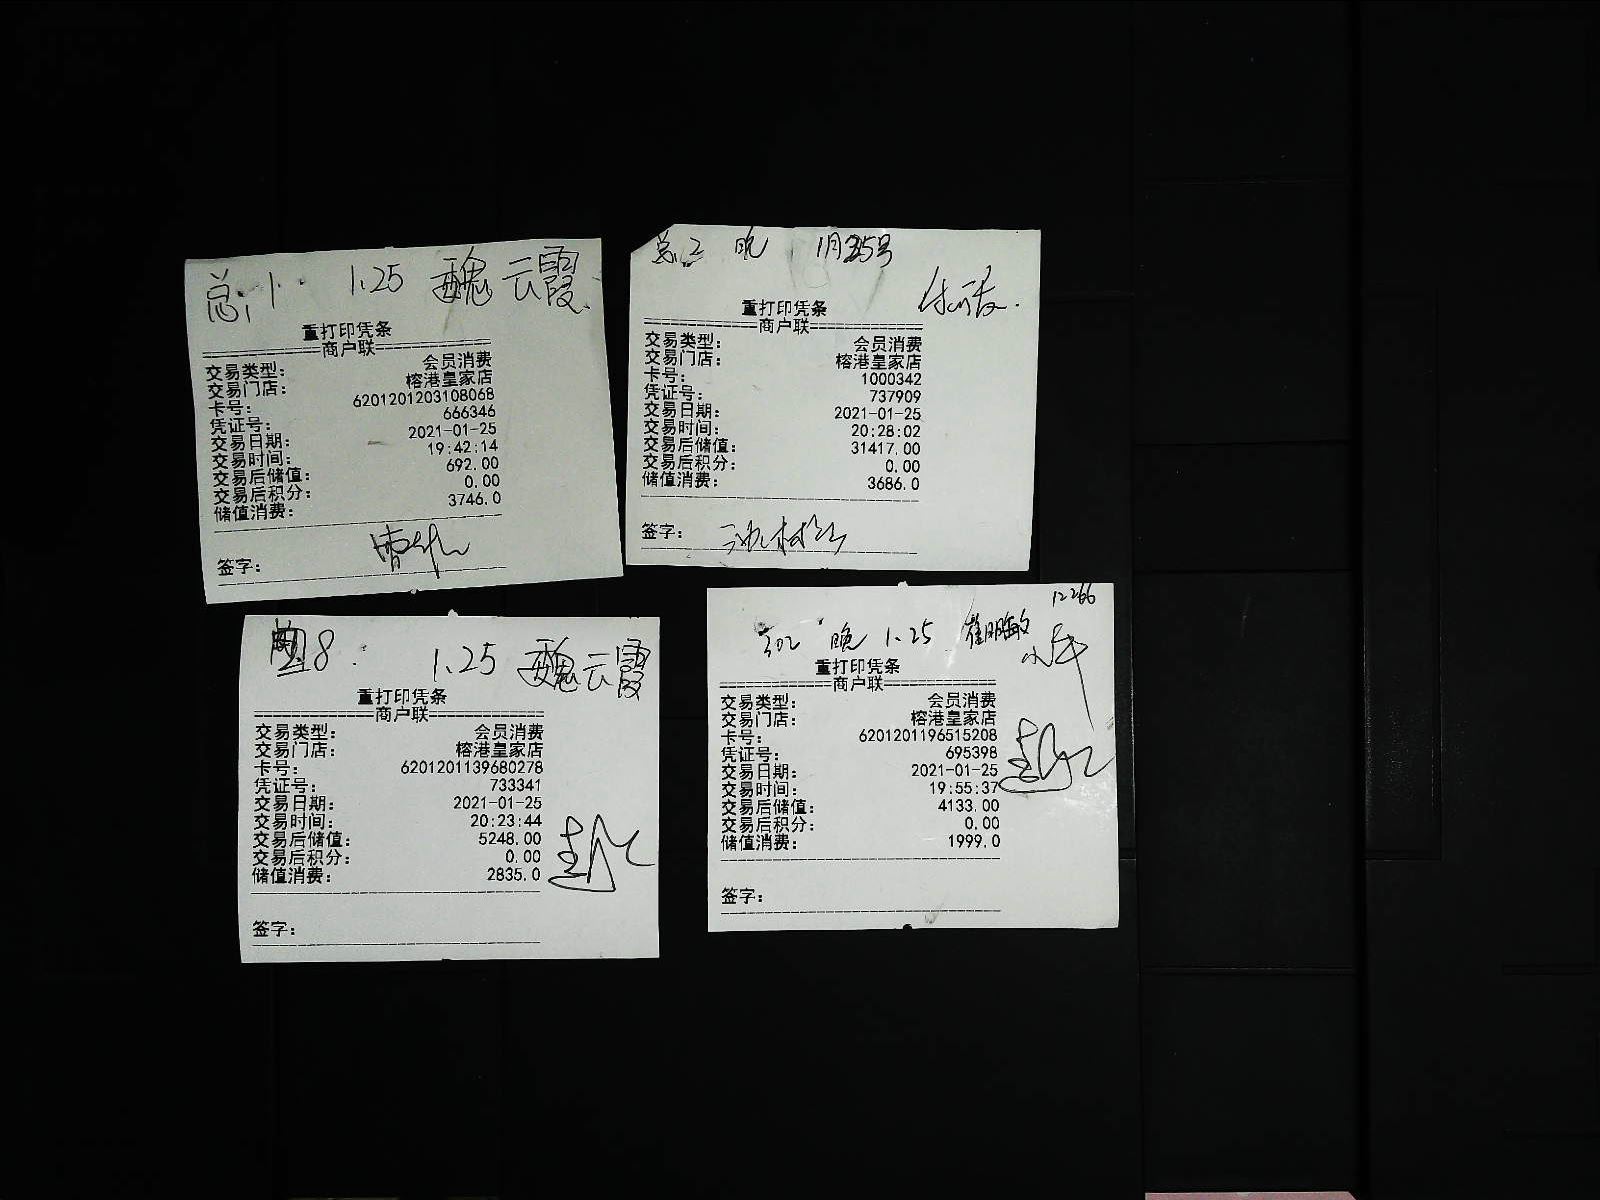 总1 1.25 魏云霞
重打印凭条
==========商户联==========
交易类型: 会员消费
交易门店: 榕港皇家店
卡号: 6201201203108068
凭证号: 666346
交易日期: 2021-01-25
交易时间: 19:42:14
交易后储值: 692.00
交易后积分: 0.00
储值消费: 3746.0
签字:
总2 晚 1月25号
重打印凭条
==========商户联==========
交易类型: 会员消费
交易门店: 榕港皇家店
卡号: 1000342
凭证号: 737909
交易日期: 2021-01-25
交易时间: 20:28:02
交易后储值: 31417.00
交易后积分: 0.00
储值消费: 3686.0
签字:
8 1.25 魏云霞
重打印凭条
==========商户联==========
交易类型: 会员消费
交易门店: 榕港皇家店
卡号: 6201201139680278
凭证号: 733341
交易日期: 2021-01-25
交易时间: 20:23:44
交易后储值: 5248.00
交易后积分: 0.00
储值消费: 2835.0
签字:
12266
302 晚 1.25 崔明敏
重打印凭条
==========商户联==========
交易类型: 会员消费
交易门店: 榕港皇家店
卡号: 6201201196515208
凭证号: 695398
交易日期: 2021-01-25
交易时间: 19:55:37
交易后储值: 4133.00
交易后积分: 0.00
储值消费: 1999.0
签字: